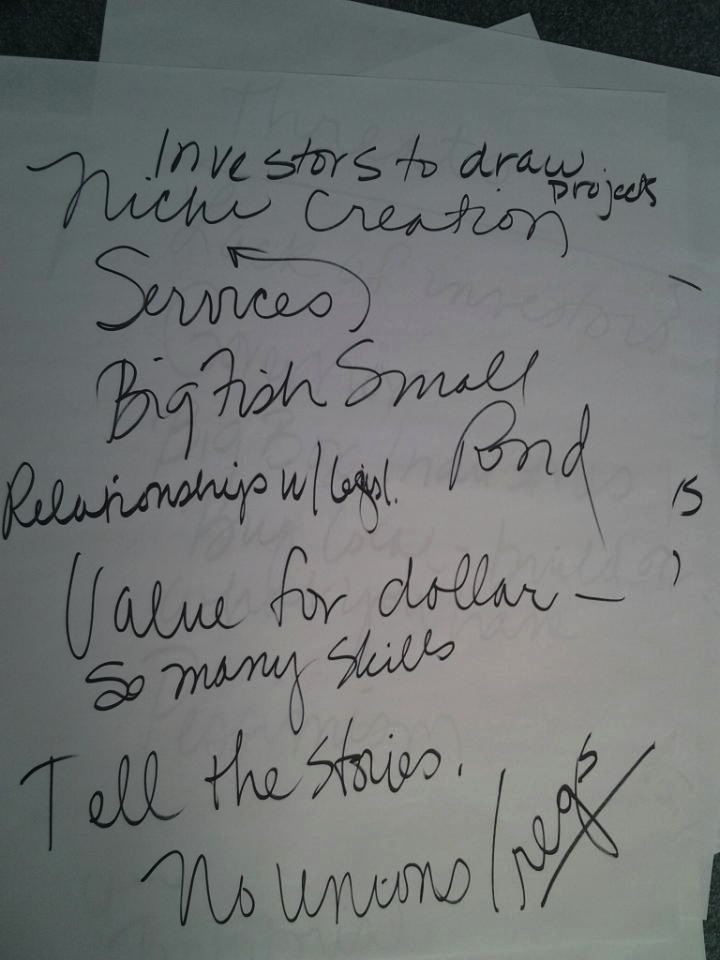 Investors to draw
projects
Niche Creation
Services
Big Fish Small
Pond
Relationships w/ legisl.
Value for dollar —
So many skills
Tell the stories.
No unions / regs